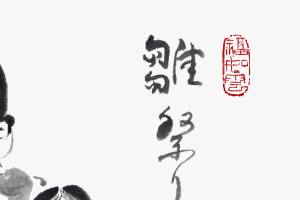 雛祭り